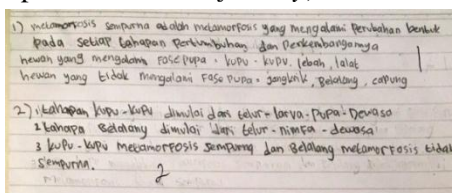 1) metamorfosis sempurna adalah metamorfosis yang mengalami perubahan bentuk
pada setiap tahapan pertumbuhan dan perkembangannya
hewan yang mengalami fase pupa : kupu-kupu, lebah, lalat
hewan yang tidak mengalami fase pupa : jangkrik, Belalang, capung
1
2) 1 tahapan kupu-kupu dimulai dari telur-larva-Pupa-Dewasa
2 tahapa Belalang dimulai dari telur-nimfa-dewasa
3 kupu-kupu metamorfosis sempurna dan Belalang metamorfosis tidak
sempurna.
2